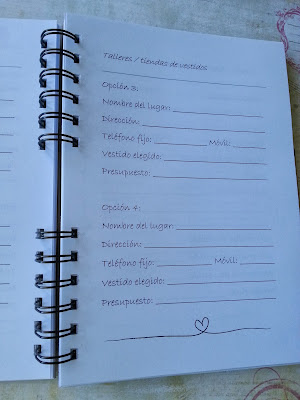 Talleres / tiendas de vestidos
Opción 3:
Nombre del lugar:
Dirección:
Teléfono fijo: Móvil:
Vestido elegido:
Presupuesto:
Opción 4:
Nombre del lugar:
Dirección:
Teléfono fijo: Móvil:
Vestido elegido:
Presupuesto: